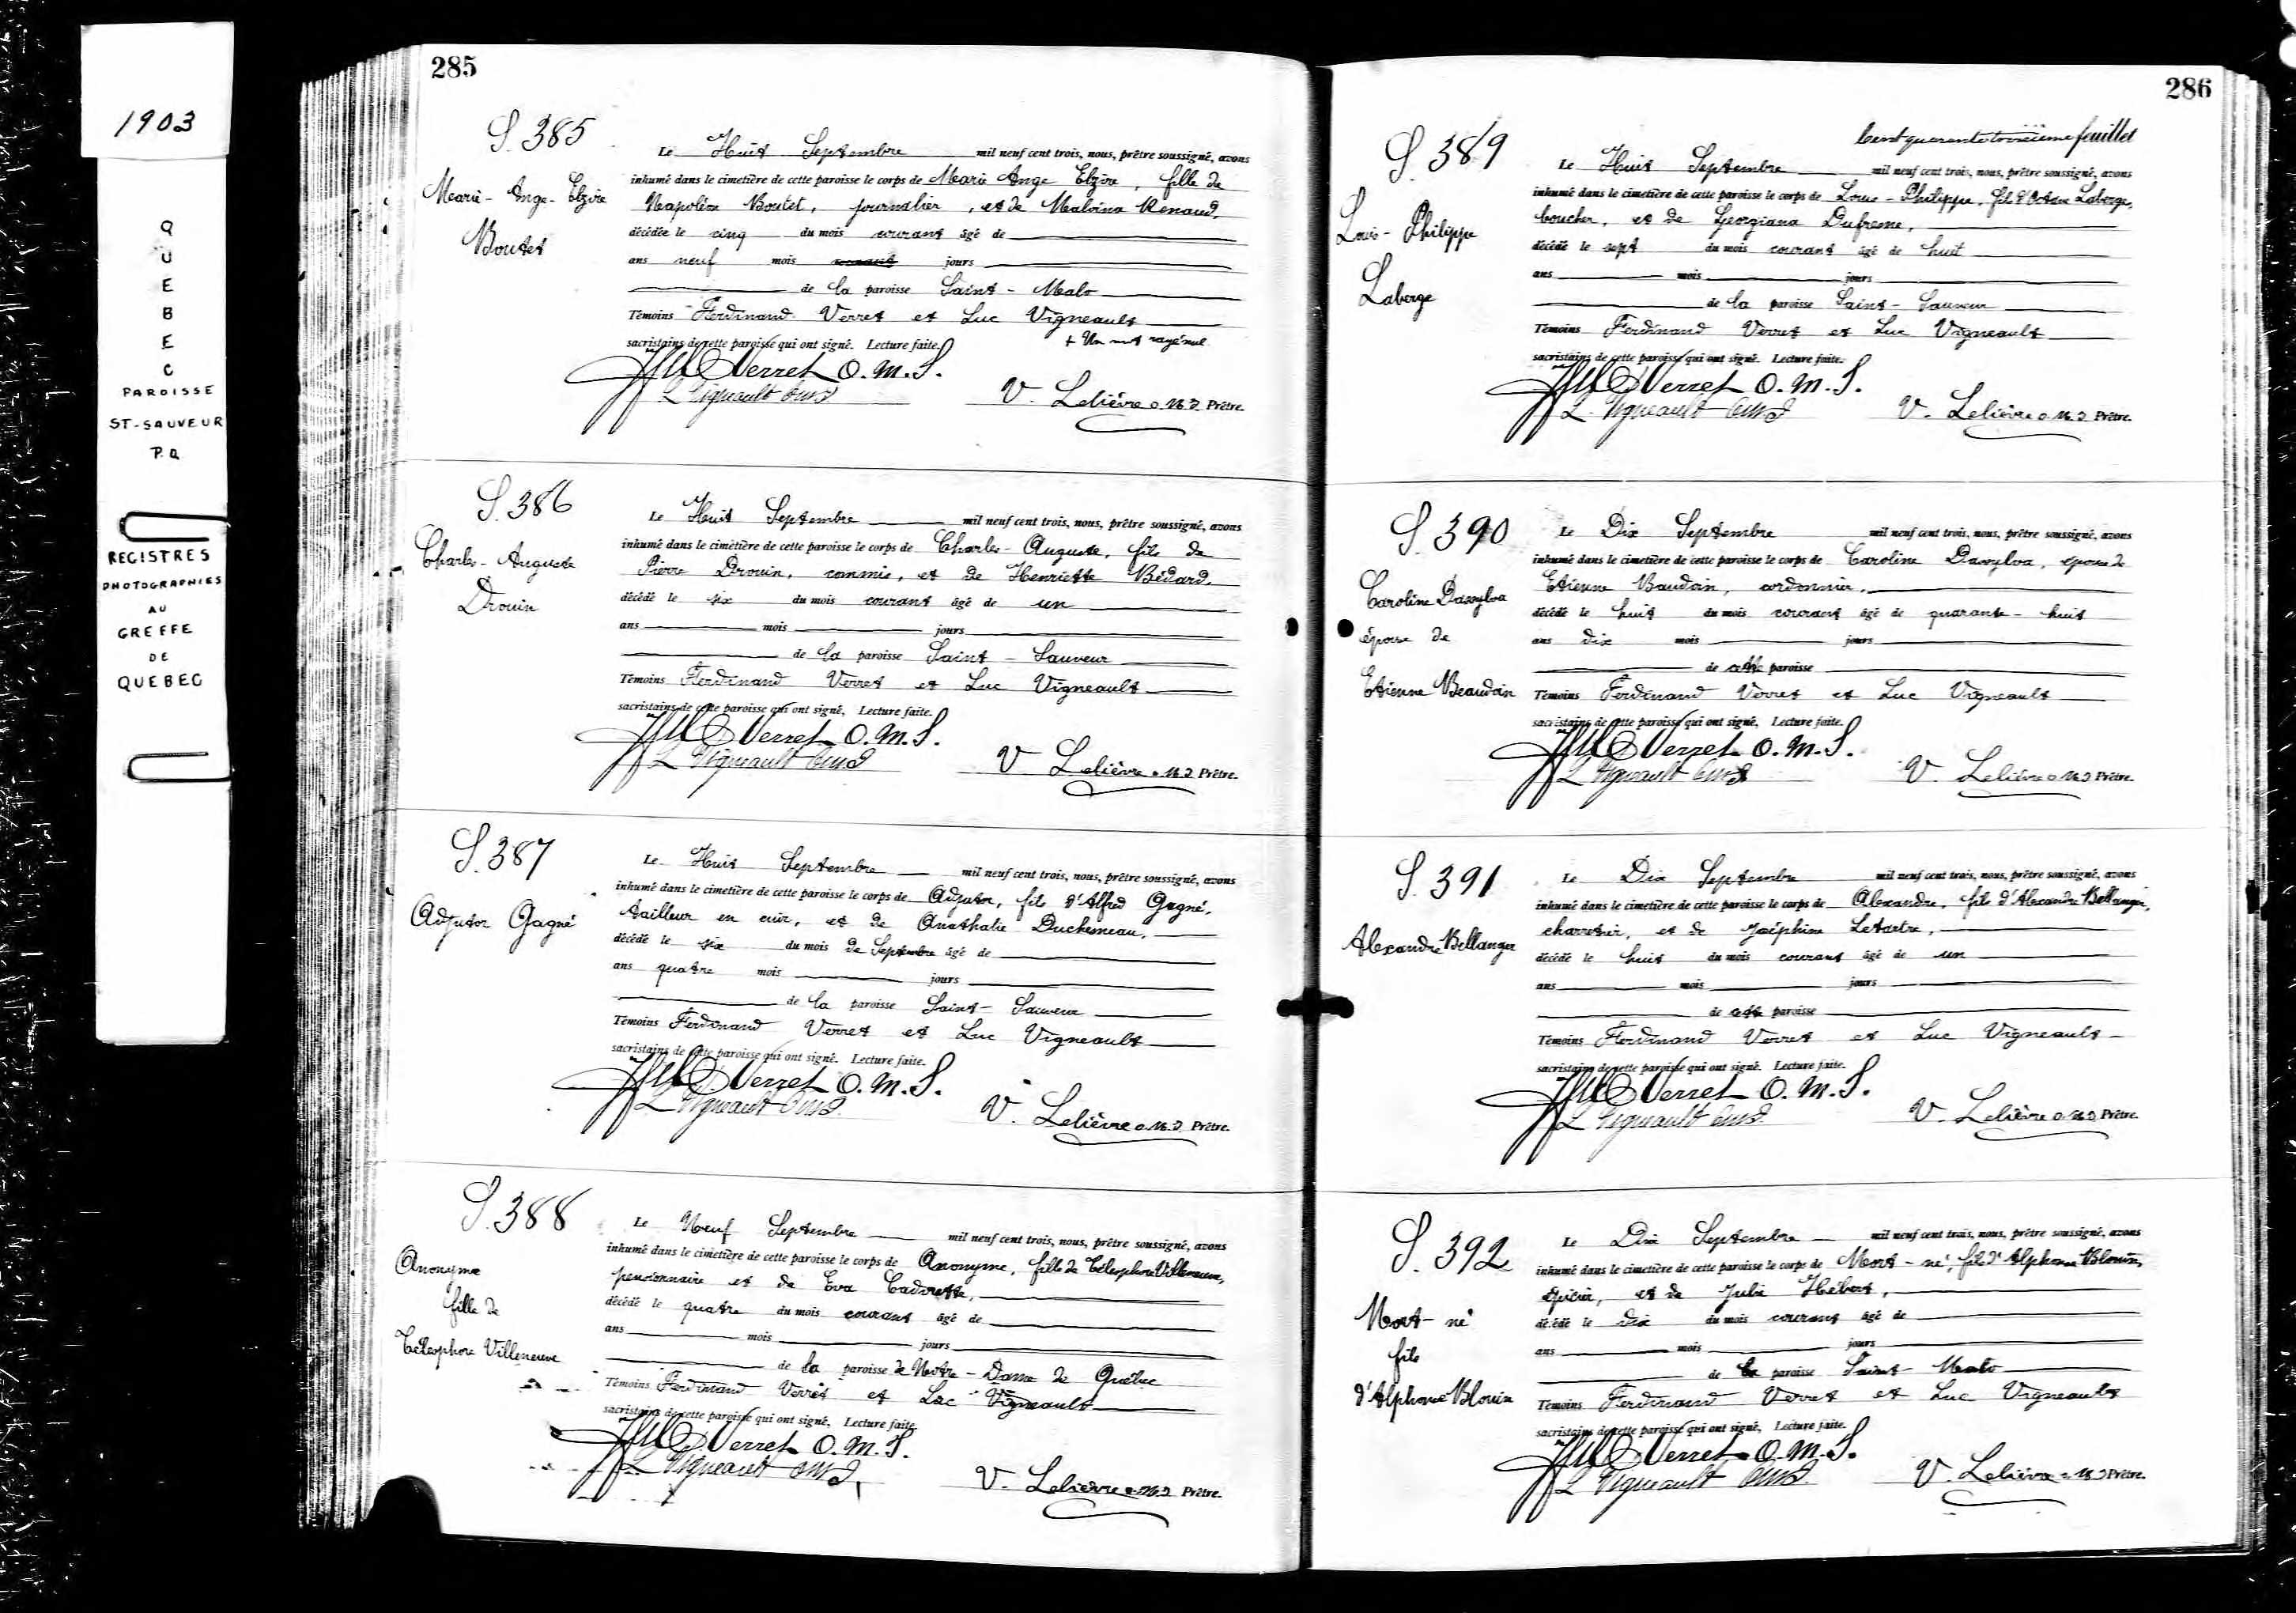 1903
QUEBEC
PAROISSE
ST-SAUVEUR
P.Q
REGISTRES
PHOTOGRAPHIES
AU
GREFFE
DE
QUEBEC
285
S. 385
Marie-Ange-Elzire
Boutet
Le Huit Septembre mil neuf cent trois, nous, prêtre soussigné, avons
inhumé dans le cimetière de cette paroisse le corps de Marie Ange Elzire, fille de
Napoléon Boutet, journalier, et de Malvina Renaud,
décédée le cinq du mois courant âgé de
ans neuf mois jours
de la paroisse Saint-Malo
Témoins Ferdinand Verret et Luc Vigneault
sacristains de cette paroisse qui ont signé. Lecture faite. + Un mot rayé nul
Verret O.M.S.
L Vigneault
V. Lelièvre o.m.i. Prêtre.
S. 386
Charles-Auguste
Drouin
Le Huit Septembre mil neuf cent trois, nous, prêtre soussigné, avons
inhumé dans le cimetière de cette paroisse le corps de Charles-Auguste, fils de
Pierre Drouin, commis, et de Henriette Bédard,
décédé le six du mois courant âgé de un
ans mois jours
de la paroisse Saint-Sauveur
Témoins Ferdinand Verret et Luc Vigneault
sacristains de cette paroisse qui ont signé, Lecture faite.
Verret O.M.S.
L Vigneault
V Lelièvre o.m.i. Prêtre.
S. 387
Adjutor Gagné
Le Huit Septembre mil neuf cent trois, nous, prêtre soussigné, avons
inhumé dans le cimetière de cette paroisse le corps de Adjutor, fils d'Alfred Gagné,
tailleur en cuir, et de Anathalie Duchesneau,
décédé le six du mois de Septembre âgé de
ans quatre mois jours
de la paroisse Saint-Sauveur
Témoins Ferdinand Verret et Luc Vigneault
sacristains de cette paroisse qui ont signé. Lecture faite.
Verret O.M.S.
L Vigneault
V. Lelièvre o.m.i. Prêtre.
S. 388
Anonyme
fille de
Télesphore Villeneuve
Le Neuf Septembre mil neuf cent trois, nous, prêtre soussigné, avons
inhumé dans le cimetière de cette paroisse le corps de Anonyme, fille de Télesphore Villeneuve,
pensionnaire et de Eva Cadorette,
décédé le quatre du mois courant âgé de
ans mois jours
de la paroisse de Notre-Dame de Québec
Témoins Ferdinand Verret et Luc Vigneault
sacristains de cette paroisse qui ont signé, Lecture faite.
Verret O.M.S.
L Vigneault
V. Lelièvre o.m.i. Prêtre.
286
Cent quarante troisième feuillet
S. 389
Louis-Philippe
Laberge
Le Huit Septembre mil neuf cent trois, nous, prêtre soussigné, avons
inhumé dans le cimetière de cette paroisse le corps de Louis-Philippe, fils d'Octave Laberge,
boucher, et de Georgiana Dufresne,
décédé le sept du mois courant âgé de huit
ans mois jours
de la paroisse Saint-Sauveur
Témoins Ferdinand Verret et Luc Vigneault
sacristains de cette paroisse qui ont signé. Lecture faite.
Verret O.M.S.
L. Vigneault
V. Lelièvre o.m.i. Prêtre.
S. 390
Caroline Dassylva
épouse de
Etienne Beaudoin
Le Dix Septembre mil neuf cent trois, nous, prêtre soussigné, avons
inhumé dans le cimetière de cette paroisse le corps de Caroline Dassylva, épouse de
Etienne Baudoin, cordonnier,
décédé le huit du mois courant âgé de quarante-huit
ans dix mois jours
de cette paroisse
Témoins Ferdinand Verret et Luc Vigneault
sacristains de cette paroisse qui ont signé, Lecture faite.
Verret O.M.S.
L Vigneault
V. Lelièvre o.m.i. Prêtre.
S. 391
Alexandre Bellanger
Le Dix Septembre mil neuf cent trois, nous, prêtre soussigné, avons
inhumé dans le cimetière de cette paroisse le corps de Alexandre, fils d'Alexandre Bellanger,
charretier, et de Joséphine Letartre,
décédé le huit du mois courant âgé de un
ans mois jours
de cette paroisse
Témoins Ferdinand Verret et Luc Vigneault
sacristains de cette paroisse qui ont signé. Lecture faite.
Verret O.M.S.
L Vigneault
V. Lelièvre o.m.i. Prêtre.
S. 392
Mort-né
fils
d'Alphonse Blouin
Le Dix Septembre mil neuf cent trois, nous, prêtre soussigné, avons
inhumé dans le cimetière de cette paroisse le corps de Mort-né, fils d'Alphonse Blouin,
épicier, et de Julie Hébert,
décédé le dix du mois courant âgé de
ans mois jours
de la paroisse Saint-Malo
Témoins Ferdinand Verret et Luc Vigneault
sacristains de cette paroisse qui ont signé, Lecture faite.
Verret O.M.S.
L Vigneault
V. Lelièvre o.m.i. Prêtre.